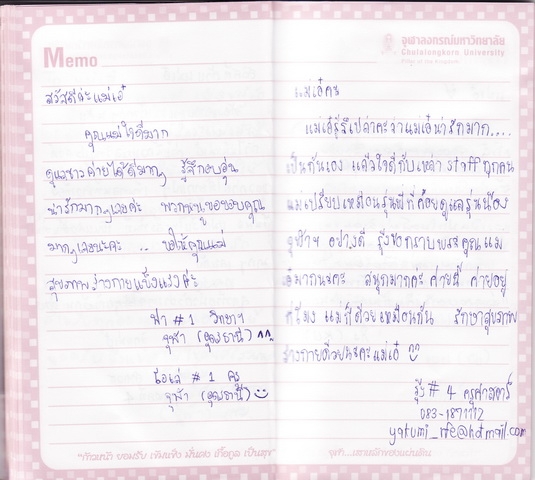 Memo
สวัสดีค่ะแม่เอ๋
คุณแม่ใจดีมาก
ดูแลชาวค่ายได้ดีมากๆ รู้สึกอบอุ่น
น่ารักมากๆเลยค่ะ พวกหนูขอขอบคุณ
มากๆเลยนะคะ .. ขอให้คุณแม่
สุขภาพร่างกายแข็งแรงค่ะ
ฟ้า # 1 วิทยาฯ
จุฬา (อุดรธานี) ^^
โอเล่ # 1 ครุ
จุฬา (อุดรธานี) ☺
จุฬาลงกรณ์มหาวิทยาลัย
Chulalongkorn University
Pillar of the Kingdom
แม่เอ๋คะ
แม่เอ๋รู้รึเปล่าคะว่าแม่เอ๋น่ารักมาก....
เป็นกันเอง แล้วใจดีกับเหล่า staff ทุกคน
แม่เปรียบเหมือนรุ่นพี่ที่คอยดูแลรุ่นน้อง
จุฬาฯ อย่างดี รุ้งขอกราบพระคุณแม่
เอ๋มากนะคะ สนุกมากค่ะ ค่ายนี้ ค่ายอยู่
แม่ก็ด้วยเหมือนกัน รักษาสุขภาพ
ร่างกายด้วยนะคะแม่เอ๋ ^^
รุ้ง # 4 ครุศาสตร์
083-1871112
yakumi_life@hotmail.com
"เกียรติภูมิจุฬาฯ
จุฬาฯ...เสาหลักของแผ่นดิน